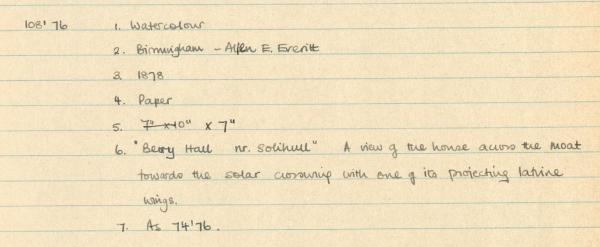 108'76 1. Watercolour
2. Birmingham - Allen E. Everitt
3. 1878
4. Paper
5. 7" x 10" x 7"
6. "Berry Hall nr. Solihull" A view of the house across the moat
towards the solar crosswing with one of its projecting latrine
wings.
7. As 74'76.